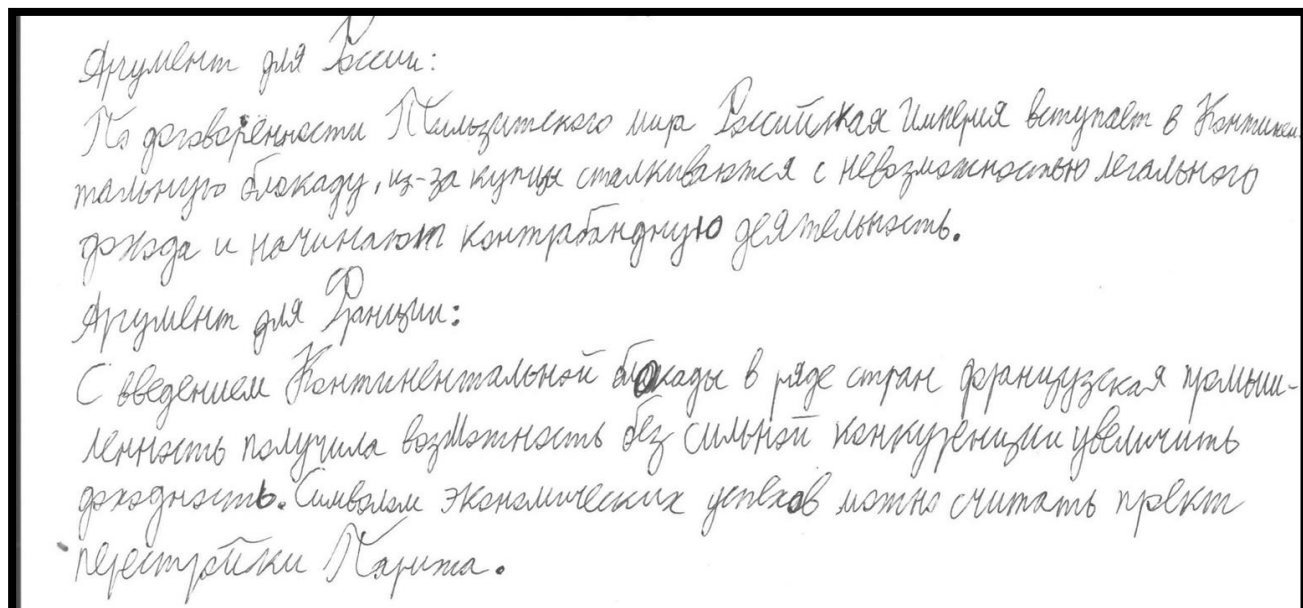 Аргумент для России:
По договорённости Тильзитского мира Российская Империя вступает в Континен-
тальную блокаду, из-за купцы сталкиваются с невозможностью легального
дохода и начинают контрабандную деятельность.
Аргумент для Франции:
С введением Континентальной блокады в ряде стран французская промыш-
ленность получила возможность без сильной конкуренции увеличить
доходность. Символом экономических успехов можно считать проект
перестройки Парижа.